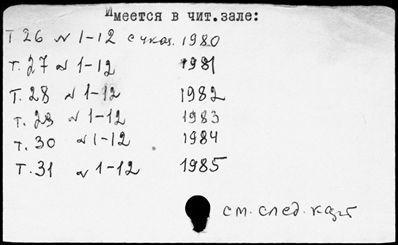 Имеется в чит.зале:
Т 26 N 1-12 с указ. 1980
т. 27 N 1-12 1981
Т. 28 N 1-12 1982
т. 29 N 1-12 1983
т. 30 N 1-12 1984
Т. 31 N 1-12 1985
см. след. карт